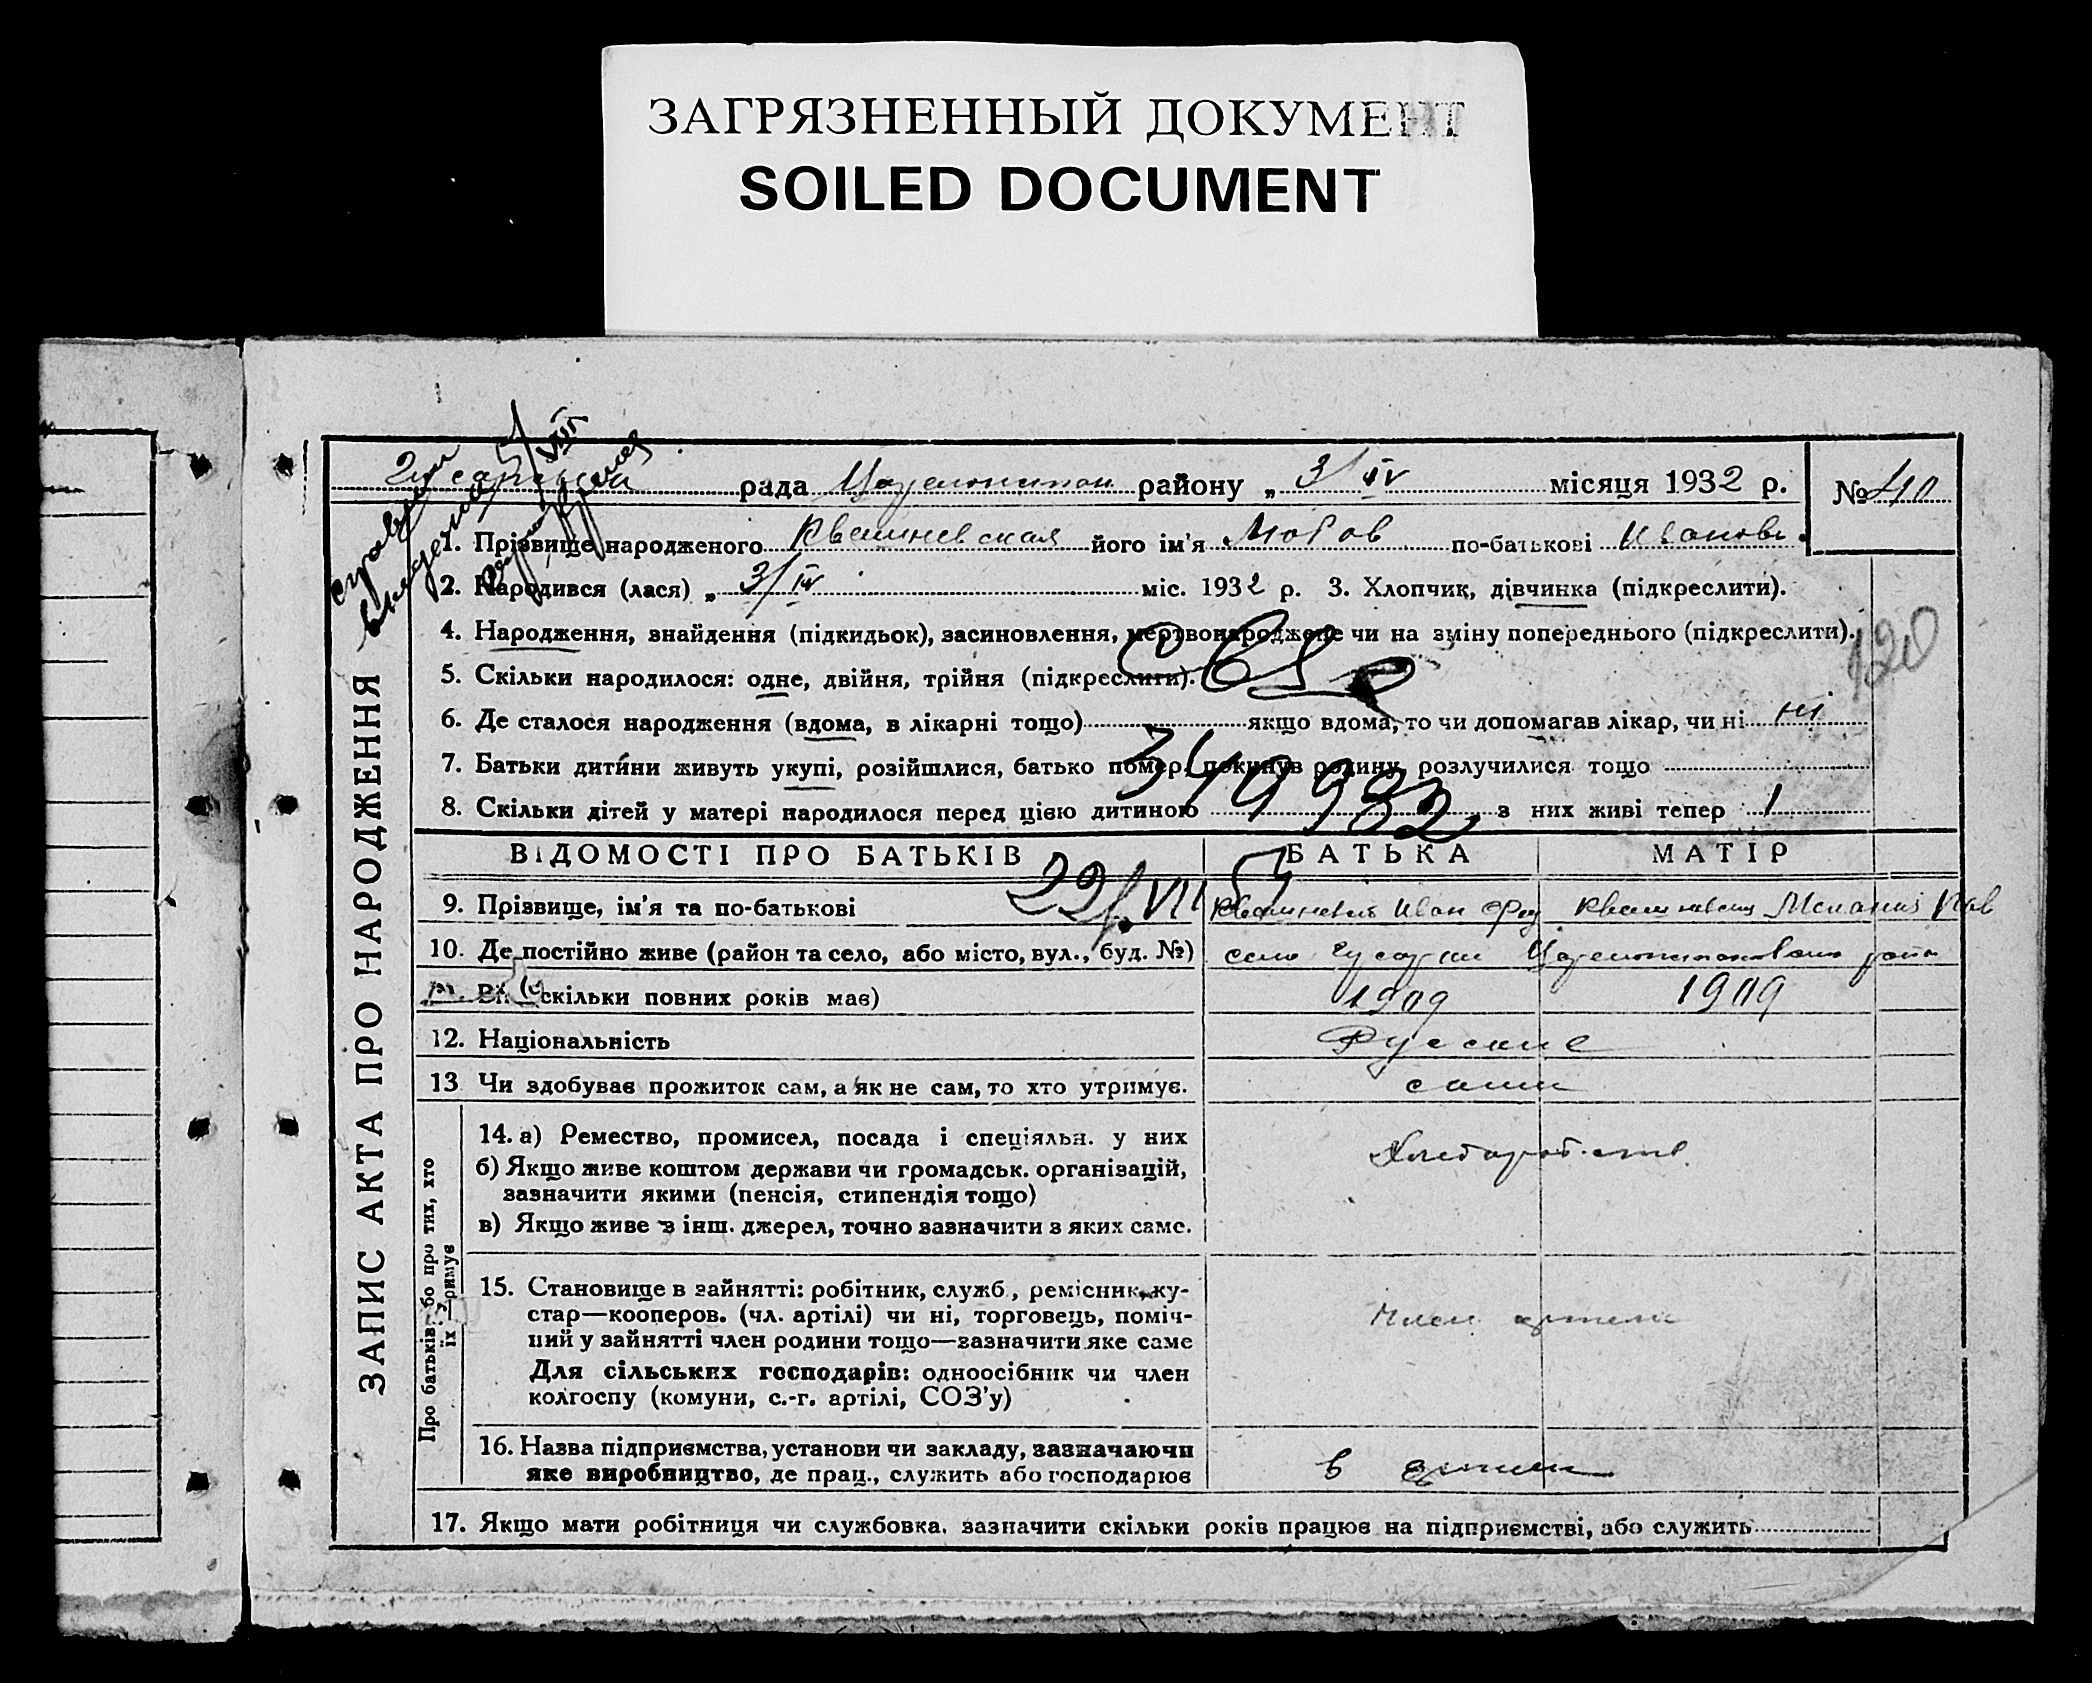 ЗАГРЯЗНЕННЫЙ ДОКУМЕНТ
SOILED DOCUMENT
рада району „ 3/IV місяця 1932 р. №
1. Прізвище народженого Квашневская його ім'я Любов по-батькові Ивановн.
2. Народився (лася) „ 3/IV міс. 1932 р. 3. Хлопчик, дівчинка (підкреслити).
4. Народження, знайдення (підкидьок), засиновлення, мертвонароджене чи на зміну попереднього (підкреслити).
120
5. Скільки народилося: одне, двійня, трійня (підкреслити).
6. Де сталося народження (вдома, в лікарні тощо) якщо вдома, то чи допомагав лікар, чи ні ні
7. Батьки дитини живуть укупі, розійшлися, батько помер, покинув родину, розлучилися тощо
8. Скільки дітей у матері народилося перед цією дитиною з них живі тепер 1
ЗАПИС АКТА ПРО НАРОДЖЕННЯ
ВІДОМОСТІ ПРО БАТЬКІВ БАТЬКА МАТІР
9. Прізвище, ім'я та по-батькові Иван
10. Де постійно живе (район та село, або місто, вул., буд. №) село
скільки повних років має) 1909 1909
12. Національність Русские
13 Чи здобуває прожиток сам, а як не сам, то хто утримує. сами
Про батьків або про тих, хто
їх утримує
14. а) Ремество, промисел, посада і спеціяльн. у них
б) Якщо живе коштом держави чи громадськ. організацій,
зазначити якими (пенсія, стипендія тощо)
в) Якщо живе з інш. джерел, точно зазначити з яких саме.
15. Становище в зайнятті: робітник, служб., ремісник, ку-
стар—кооперов. (чл. артілі) чи ні, торговець, поміч-
ний у зайнятті член родини тощо—зазначити яке саме
Член артели
Для сільських господарів: одноосібник чи член
колгоспу (комуни, с.-г. артілі, СОЗ'у)
16. Назва підприємства, установи чи закладу, зазначаючи
яке виробництво, де прац., служить або господарює в артели
17. Якщо мати робітниця чи службовка, зазначити скільки років працює на підприємстві, або служить